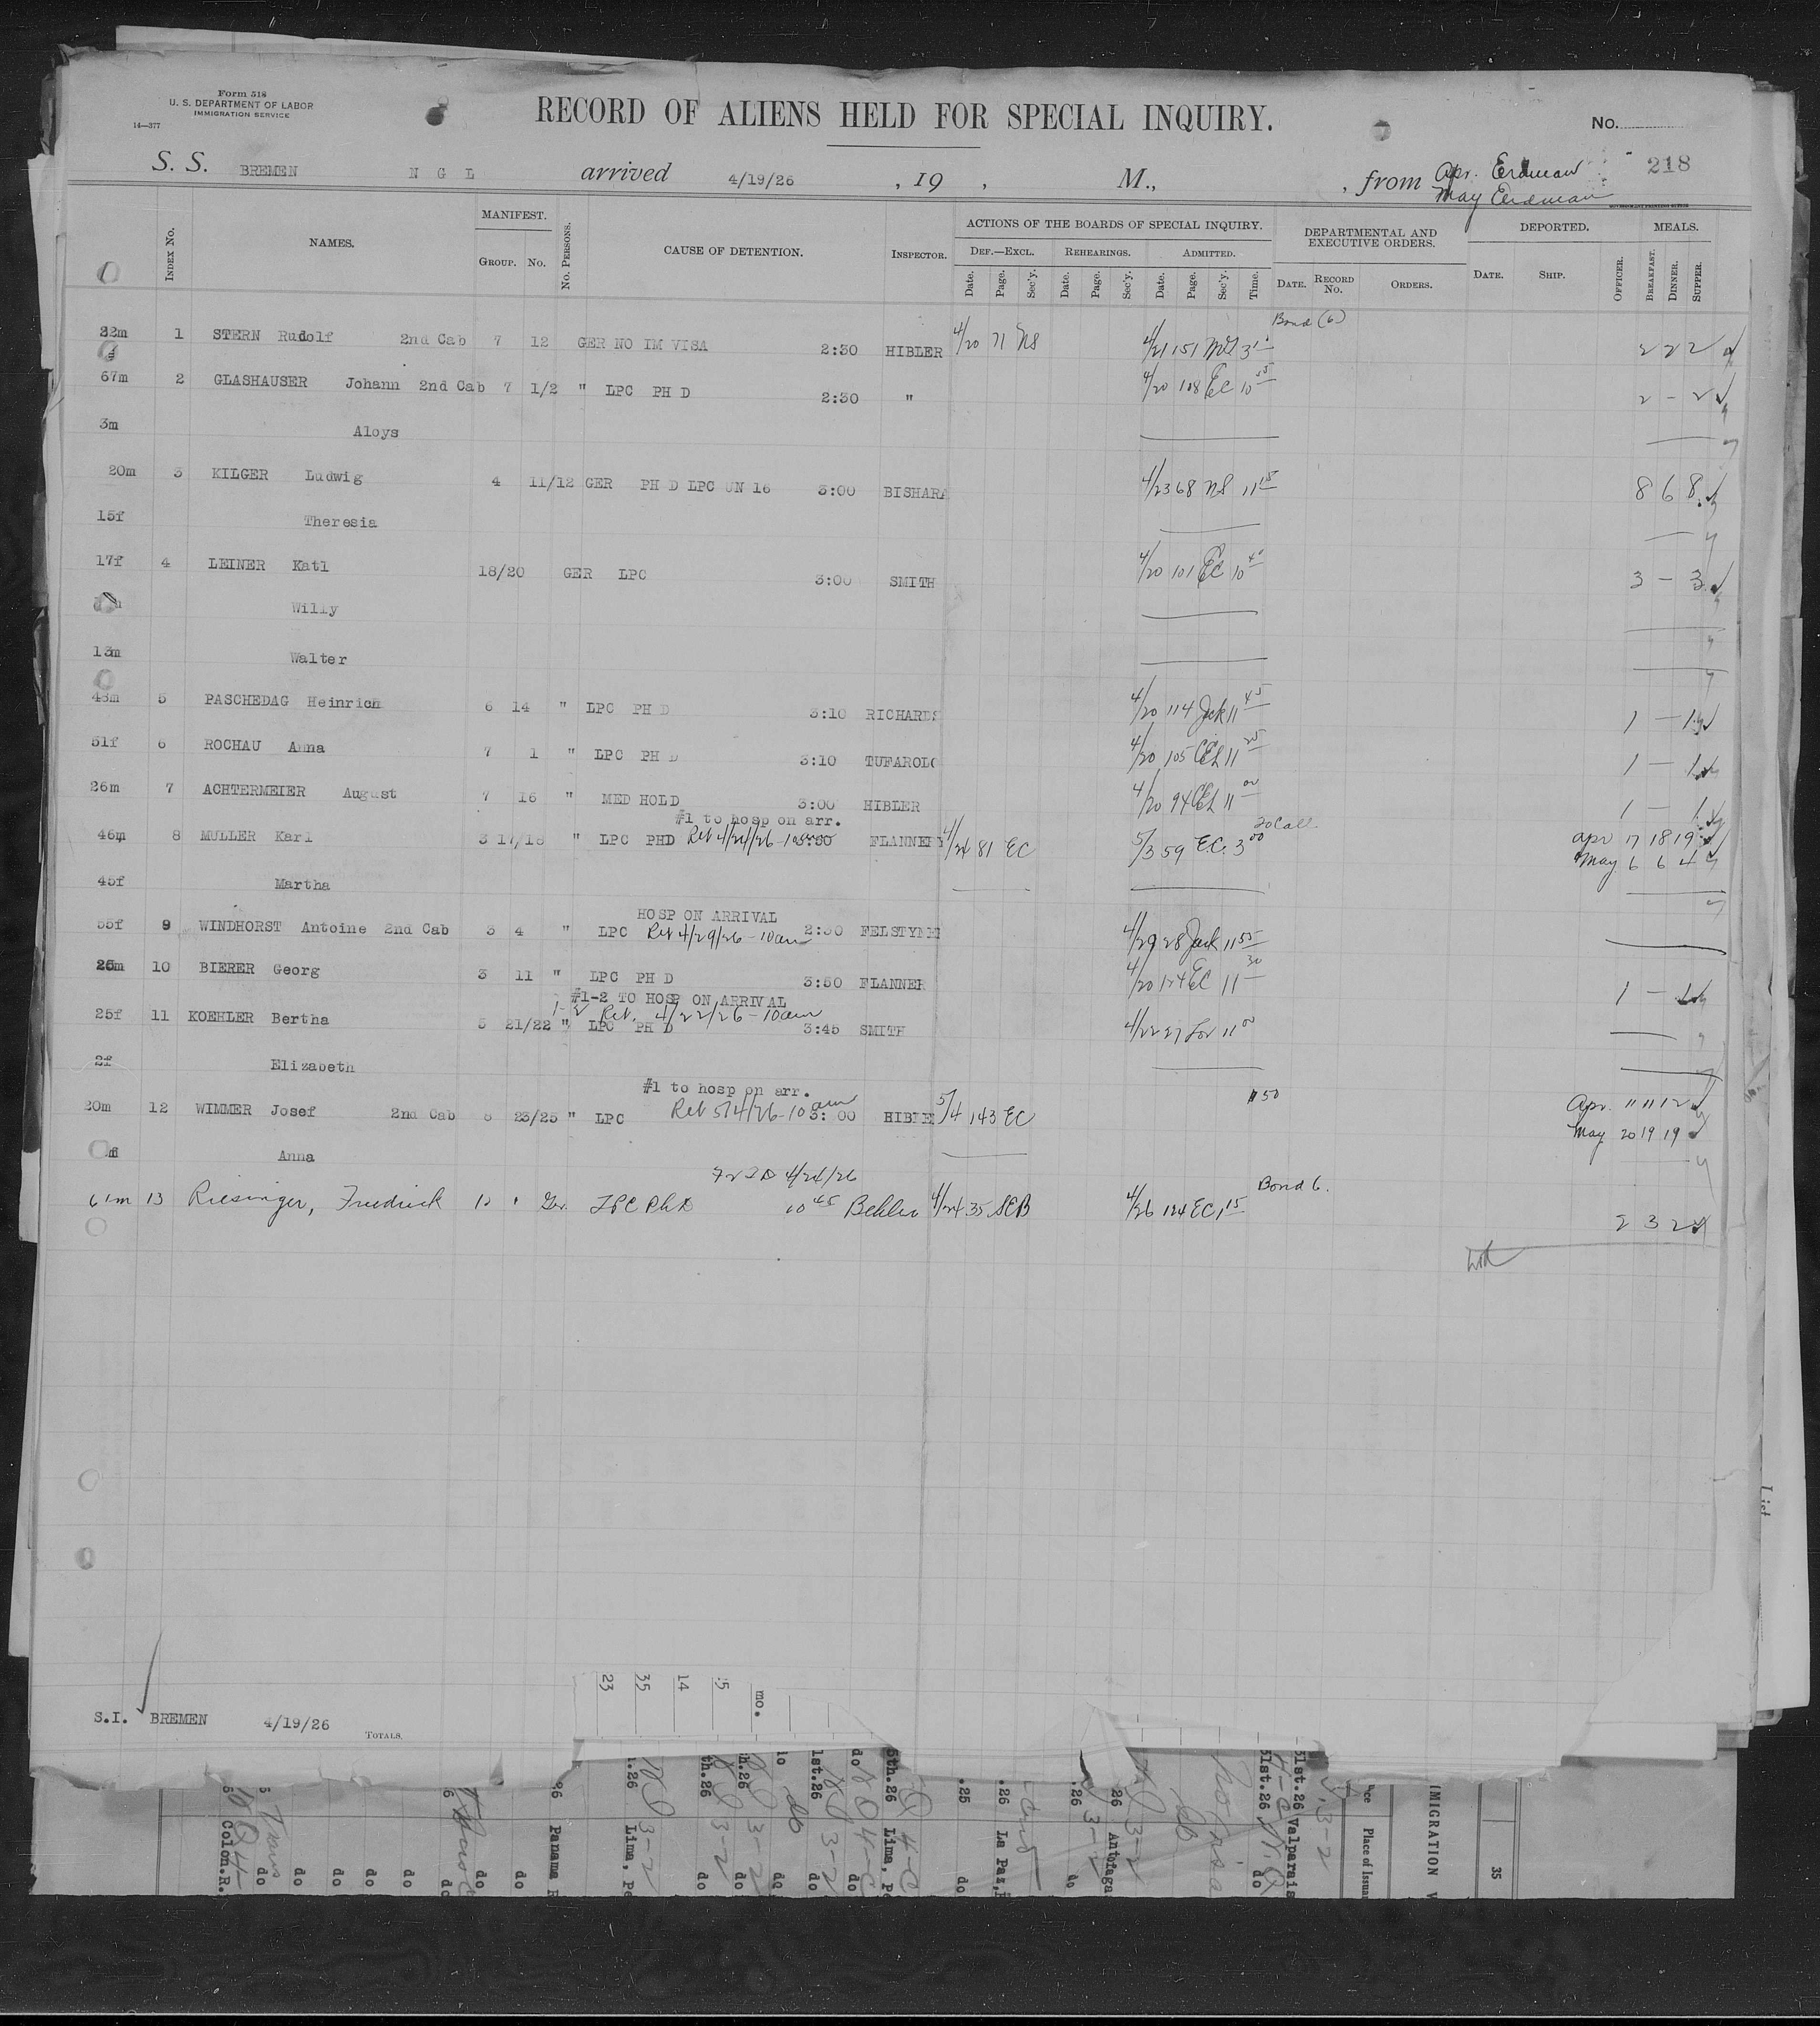 Form 518
U. S. DEPARTMENT OF LABOR
IMMIGRATION SERVICE
14—377
RECORD OF ALIENS HELD FOR SPECIAL INQUIRY.
No.
218
S. S. BREMEN N G L arrived 4/19/26 , 19 , M., , from Apr. Erdman
May Erdman
INDEX No. NAMES. MANIFEST. GROUP. No. No. PERSONS. CAUSE OF DETENTION. INSPECTOR. ACTIONS OF THE BOARDS OF SPECIAL INQUIRY. DEPARTMENTAL AND EXECUTIVE ORDERS. DEPORTED. MEALS.
DEF.—EXCL. REHEARINGS. ADMITTED.
Date. Page. Sec'y. Date. Page. Sec'y. Date. Page. Sec'y. Time. DATE. RECORD No. ORDERS. DATE. SHIP. OFFICER. BREAKFAST. DINNER. SUPPER.
Bond (6)
32m 1 STERN Rudolf 2nd Cab 7 12 GER NO IM VISA 2:30 HIBLER 4/20 71 NS 4/21 151 3 2 2 2
67m 2 GLASHAUSER Johann 2nd Cab 7 1/2 " LPC PH D 2:30 " 4/20 108 EC 10 55 2 – 2
3m Aloys
20m 3 KILGER Ludwig 4 11/12 GER PH D LPC UN 16 3:00 BISHARA 4/23 68 NS 11 15 8 6 8
15f Theresia
17f 4 LEINER Katl 18/20 GER LPC 3:00 SMITH 4/20 101 EC 10 40 3 – 3
Willy
13m Walter
48m 5 PASCHEDAG Heinrich 6 14 " LPC PH D 3:10 RICHARDS 4/20 114 Jack 11 45 1 – 1
51f 6 ROCHAU Anna 7 1 " LPC PH D 3:10 TUFAROLO 4/20 105 11 25 1 – 1
26m 7 ACHTERMEIER August 7 16 " MED HOLD 3:00 HIBLER 4/20 94 11 00 1 – 1
#1 to hosp on arr.
46m 8 MULLER Karl 3 17/18 " LPC PHD Ret 4/24/26 FLANNERY 4/24 81 EC 5/3 59 E.C. 3 00 Apr 17 18 19
May 6 6 4
45f Martha
HOSP ON ARRIVAL
55f 9 WINDHORST Antoine 2nd Cab 3 4 " LPC Ret 4/29/26 – 10 am 2:30 FELSTYNE 4/29 28 Jack 11 55
10 BIERER Georg 3 11 " LPC PH D 3:50 FLANNER 4/20 EC 11 30 1 – 1
#1-2 TO HOSP ON ARRIVAL
1-2 Ret. 4/22/26 – 10 am
25f 11 KOEHLER Bertha 5 21/22 " LPC PH D 3:45 SMITH 4/22 27 11 00
2f Elizabeth
#1 to hosp on arr.
20m 12 WIMMER Josef 2nd Cab 8 23/25 " LPC Ret 5/4/26 – 10 am 3:00 HIBLE 5/4 143 EC $50 Apr. 11 11 12
May 20 19 19
Anna
4/24/26
Bond 6.
61m 13 Riesinger, Fredrick Ger. LPC Ph D 10 45 Behler 4/24 35 SCB 4/26 124 EC 1 15 2 3 2
S.I. BREMEN 4/19/26 TOTALS.
23 35 14 mo.
Colon.R. do do do do do do do do Panama Lima, Pe do do do do do Lima, Pe do La Paz, do Antofaga do Valparais
Place of Issuan
MIGRATION
35
List